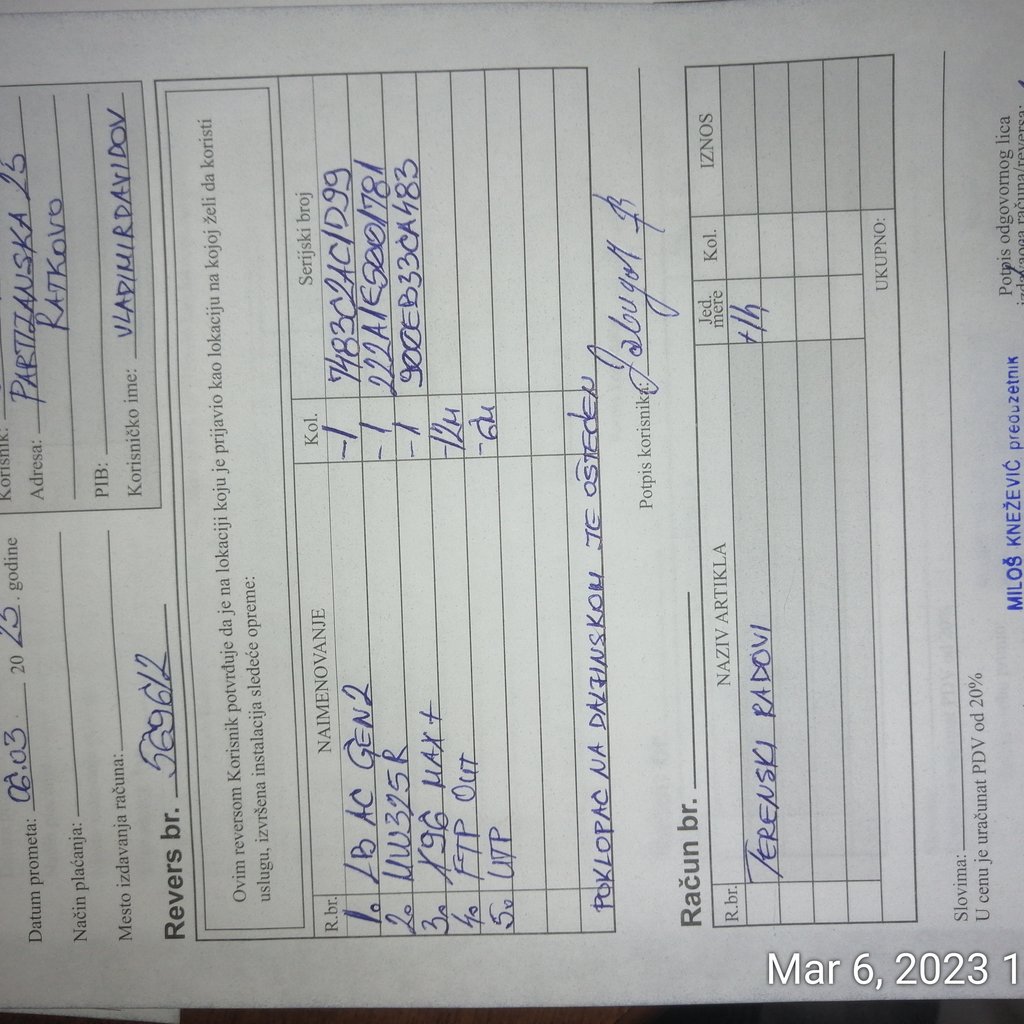 Korisnik:
Adresa: PARTIZANSKA 23
RATKOVO
PIB:
Korisničko ime: VLADIMIRDAVIDOV
Datum prometa: 06.03. 2023. godine
Način plaćanja:
Mesto izdavanja računa:
Revers br.
Ovim reversom Korisnik potvrđuje da je na lokaciji koju je prijavio kao lokaciju na kojoj želi da koristi
uslugu, izvršena instalacija sledeće opreme:
R.br. NAIMENOVANJE Kol. Serijski broj
1. LB AC GEN2 -1 7483C2AC1D99
2. MW325R -1 222A1E5001781
3. X96 MAX+ -1 900EB33CA483
4. FTP OUT -12M
5. UTP -6M
POKLOPAC NA DALJINSKOM JE OŠTEĆEN
Potpis korisnika:
Račun br.
R.br. NAZIV ARTIKLA Jed. mere Kol. IZNOS
TERENSKI RADOVI +1h
UKUPNO:
Slovima:
U cenu je uračunat PDV od 20%
Potpis odgovornog lica
izdavaoca računa/reversa:
MILOŠ KNEŽEVIĆ preduzetnik
Mar 6, 2023 1